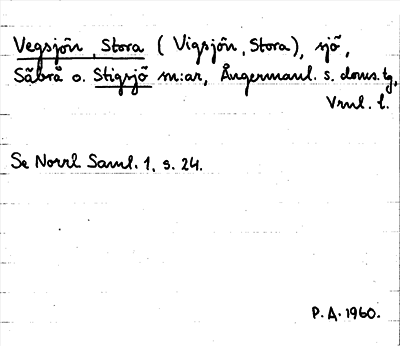 Vegsjön, Stora (Vigsjön, Stora), sjö,
Säbrå o. Stigsjö m:ar, Ångermanl. s. doms.tg,
Vrnl. l.
Se Norrl Saml. 1, s. 24.
P.A. 1960.